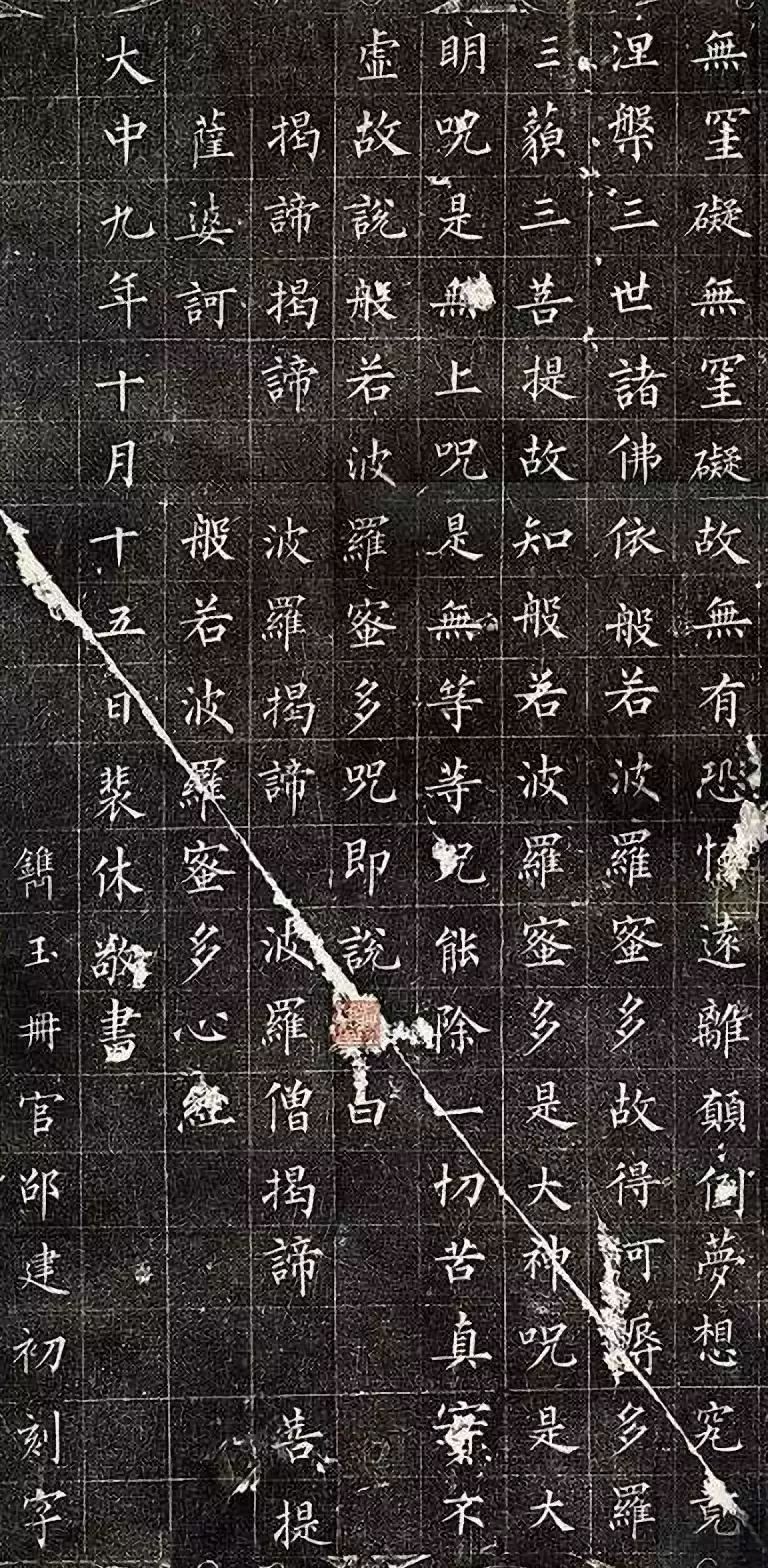 無罣礙無罣礙故無有恐怖遠離顛倒夢想究竟
涅槃三世諸佛依般若波羅蜜多故得阿耨多羅
三藐三菩提故知般若波羅蜜多是大神呪是大
明呪是無上呪是無等等呪能除一切苦真實不
虛故說般若波羅蜜多呪即說曰
揭諦揭諦 波羅揭諦 波羅僧揭諦 菩提
薩婆訶 般若波羅蜜多心經
大中九年十月十五日裴休敬書
鐫玉冊官邵建初刻字